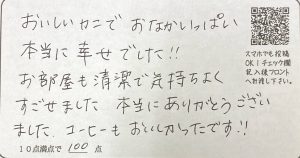 おいしいカニで おなかいっぱい
本当に幸せでした!!
お部屋も清潔で気持ちよく
すごせました 本当にありがとうござい
ました。コーヒーもおいしかったです!!
10点満点で 100 点
スマホでも投稿
OK！チェック欄
記入後フロント
へお渡し下さい。